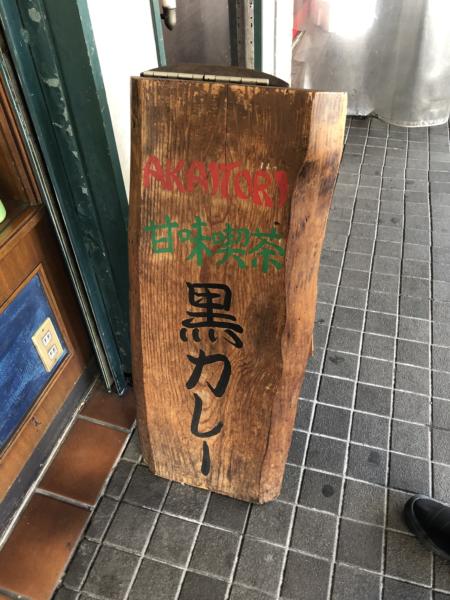 AKAITORI
甘味喫茶
黒カレー